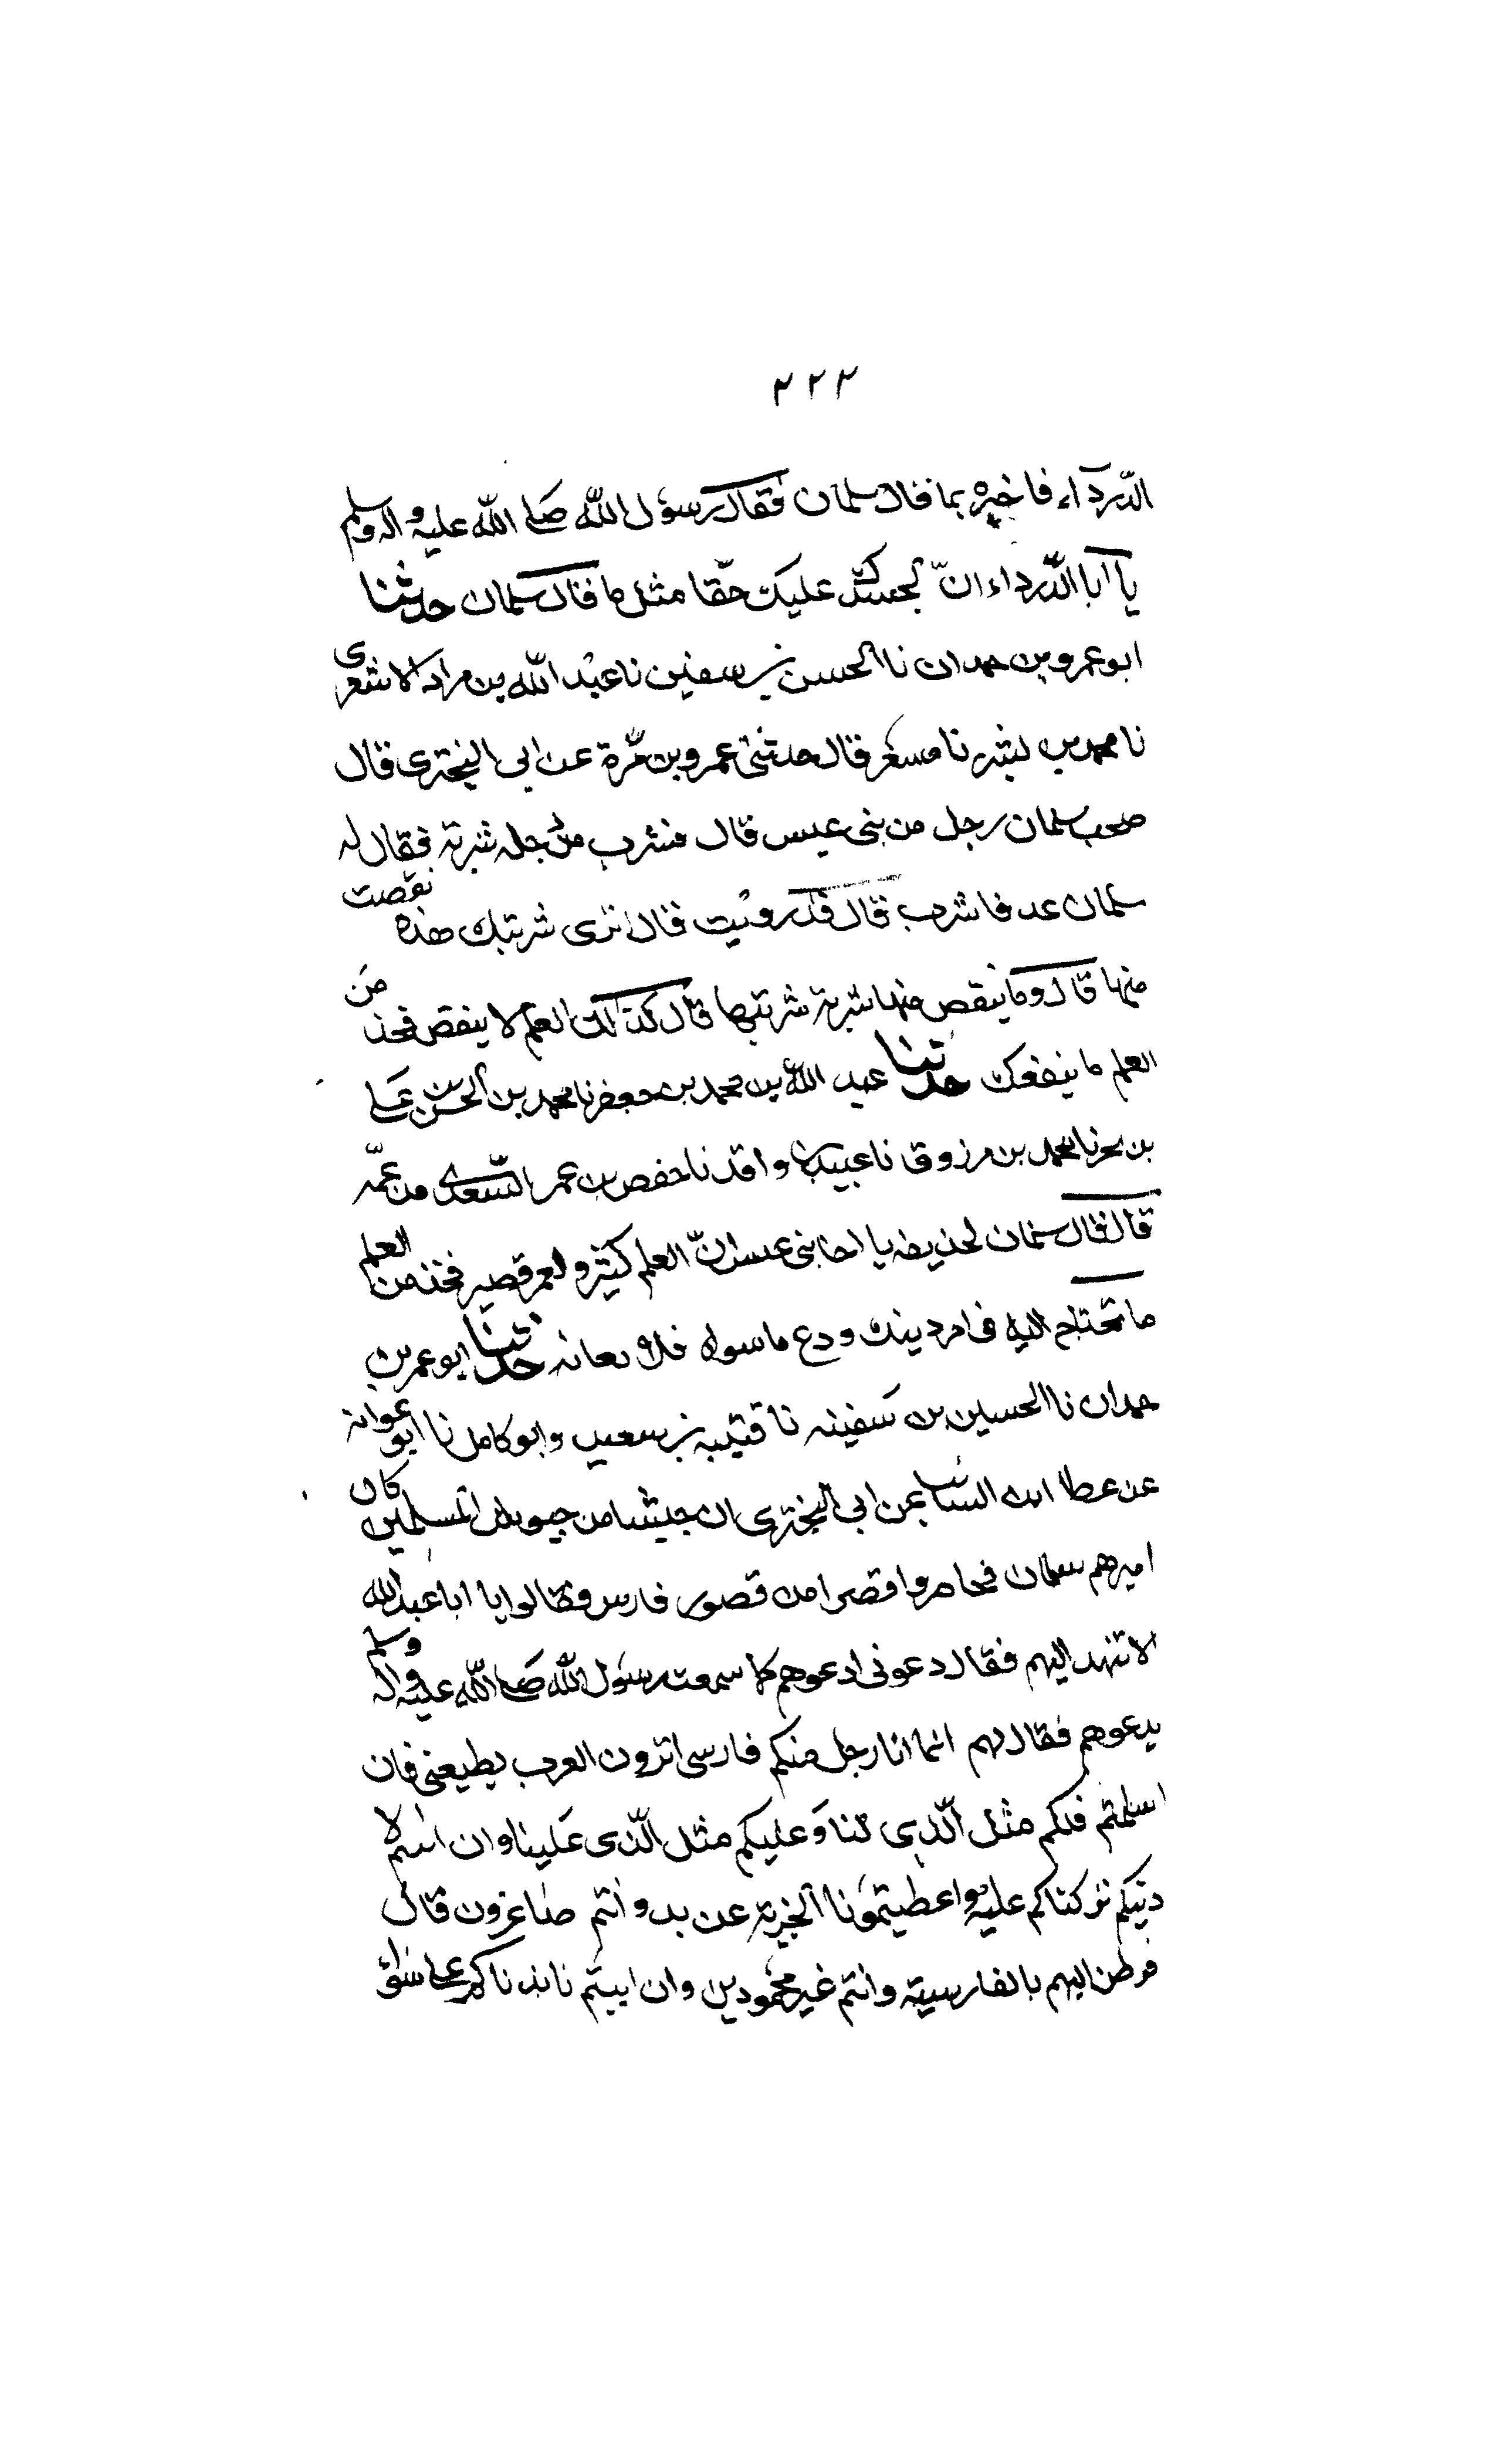 ٢٢٢
الدرداء فاخبره بما قال سلمان فقال رسول الله صلى الله عليه واله وسلم
يا ابا الدرداء ان لجسدك عليك حقا مثل ما قال سلمان حدثنا
ابو عمرو بن حمدان نا الحسن بن سفين نا عبد الله بن مراد الاشعرى
نا محمد بن بشر نا مسعر قال حدثنى عمرو بن مرة عن ابى البخترى قال
صحب سلمان رجل من بنى عبس قال فشرب من دجلة شربة فقال له
سلمان عد فاشرب قال قد رويت قال اترى شربتك هذه نقصت
منها قال وما ينقص منها شربة شربتها قال كذلك العلم لا ينقص فخذ من
العلم ما ينفعك حدثنا عبد الله بن محمد بن جعفر نا محمد بن الحسن بن على
بن بحر نا محمد بن مرزوق نا عبيد بن واقد نا حفص بن عمر السعدى عن عمه
قال قال سلمان لحذيفة يا اخا بنى عبس ان العلم كثير والعمر قصير فخذ من العلم
ما تحتاج اليه فى امر دينك ودع ما سواه فلا تعانه حدثنا ابو عمر بن
حمدان نا الحسين بن سفينه نا قتيبه بن سعيد وابو كامل نا ابو عوانه
عن عطا ابن السائب عن ابى البخترى ان جيشا من جيوش المسلمين كان
اميرهم سلمان فحاصروا قصرا من قصور فارس فقالوا يا ابا عبد الله
الا تنهد اليهم فقال دعونى ادعوهم كما سمعت رسول الله صلى الله عليه واله وسلم
يدعوهم فقال لهم انما انا رجل منكم فارسى اترون العرب يطيعنى فان
اسلمتم فلكم مثل الذى لنا وعليكم مثل الذى علينا وان ابيتم الا
دينكم تركناكم عليه واعطيتمونا الجزية عن يد وانتم صاغرون قال
فرطن اليهم بالفارسية وانتم غير محمودين وان ابيتم نابذناكم على سواء